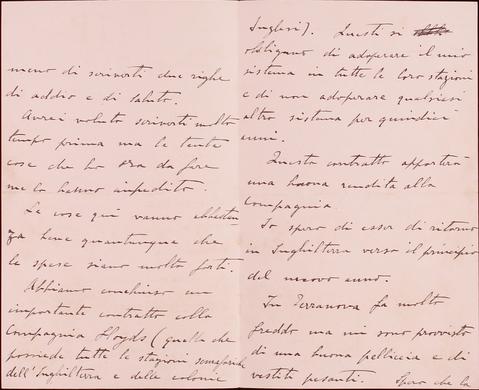 meno di scriverti due righe
di addio e di saluto.
Avrei voluto scriverti molto
tempo prima ma le tante
cose che ho ora da fare
me lo hanno impedito.
Le cose qui vanno abbastan-
za bene quantunque che
le spese siano molto forti.
Abbiamo conchiuso un
importante contratto colla
Compagnia Lloyds (quella che
possiede tutte le stazioni semaforiche
dell'Inghilterra e delle colonie
Inglesi). Questi si
obbligano di adoperare il mio
sistema in tutte le loro stazioni
e di non adoperare qualsiasi
altro sistema per quindici
anni.
Questo contratto apporterà
una buona rendita alla
Compagnia.
Io spero di esser di ritorno
in Inghilterra verso il principio
del nuovo anno.
In Terranova fa molto
freddo ma mi sono provvisto
di una buona pelliccia e di
vestiti pesanti. Spero che la